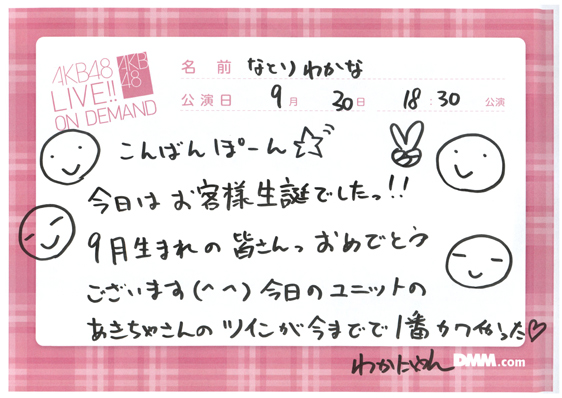 AKB48
LIVE!!
ON DEMAND
AKB
48
名前 なとり わかな
公演日 9月 30日 18:30 公演
こんばんぽーん☆
今日は お客様生誕でしたっ!!
9月生まれの 皆さんっ おめでとう
ございます(^^) 今日の ユニットの
あきちゃさんの ツインが今までで 1番カワイかった♡
わかにゃん
DMM.com